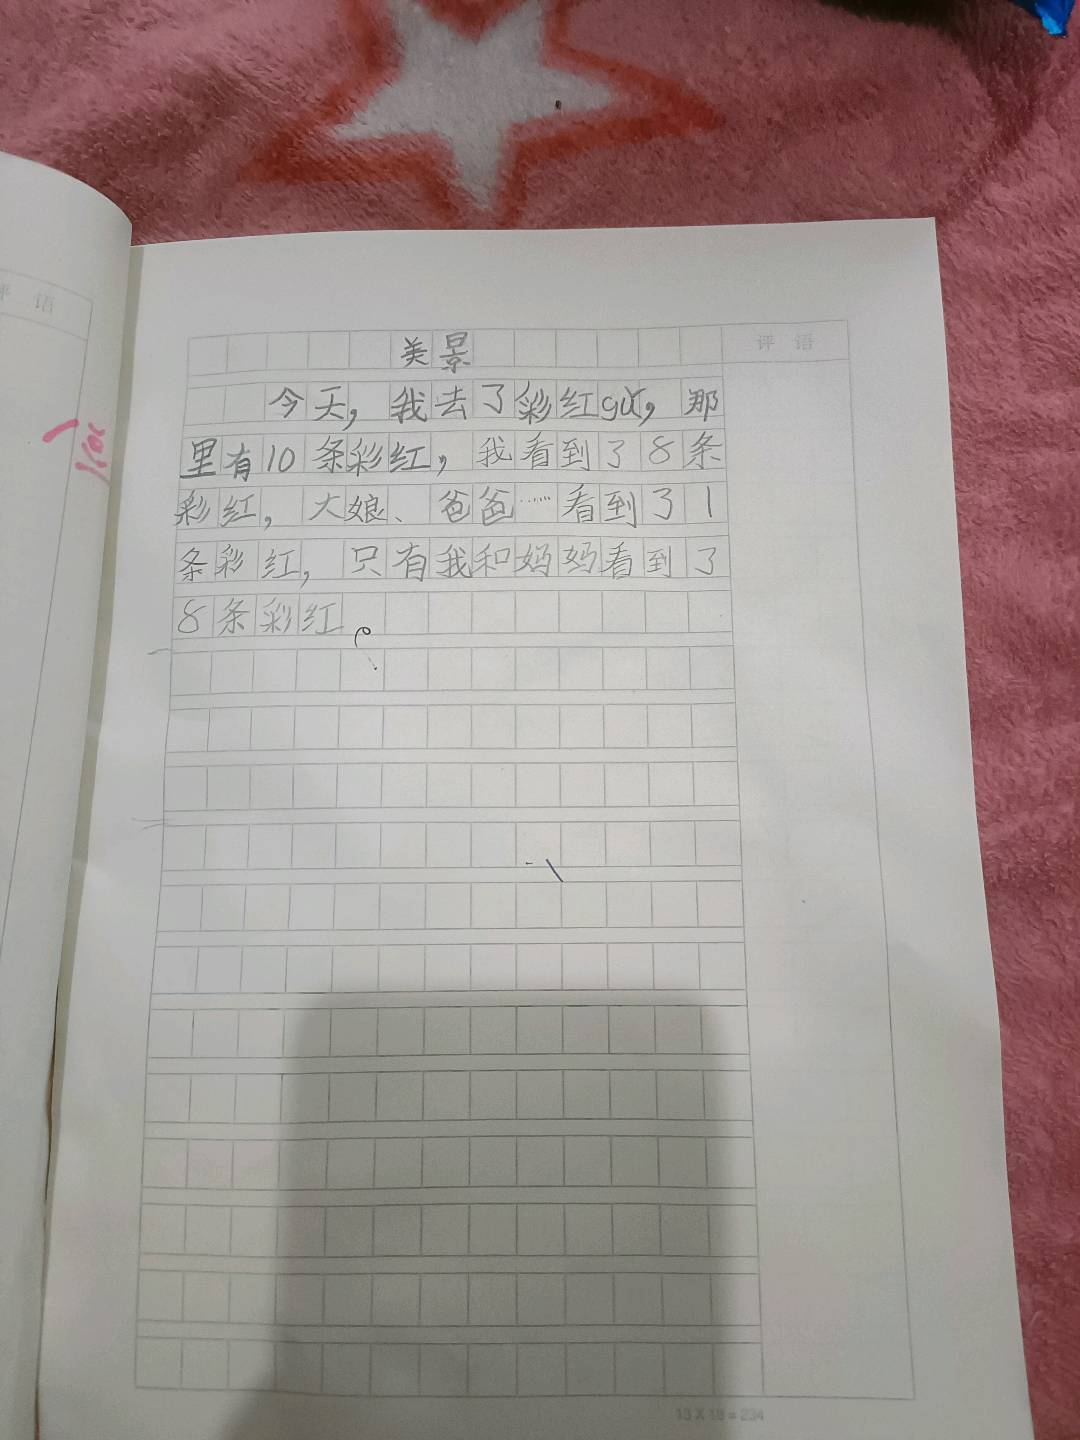 评语
美景
评语
今天，我去了彩红gǔ，那
里有10条彩红，我看到了8条
彩红，大娘、爸爸……看到了1
条彩红，只有我和妈妈看到了
8条彩红。
13×18=234